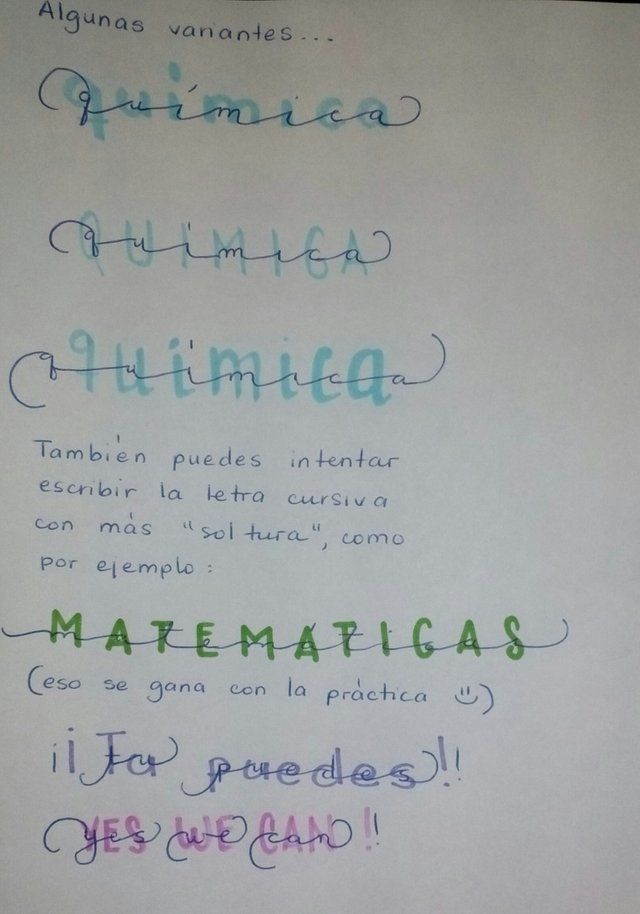 Algunas variantes...
química
química
química
También puedes intentar
escribir la letra cursiva
con más "soltura", como
por ejemplo:
MATEMÁTICAS
(eso se gana con la práctica ü)
¡¡Tu puedes!!
YES WE CAN!!